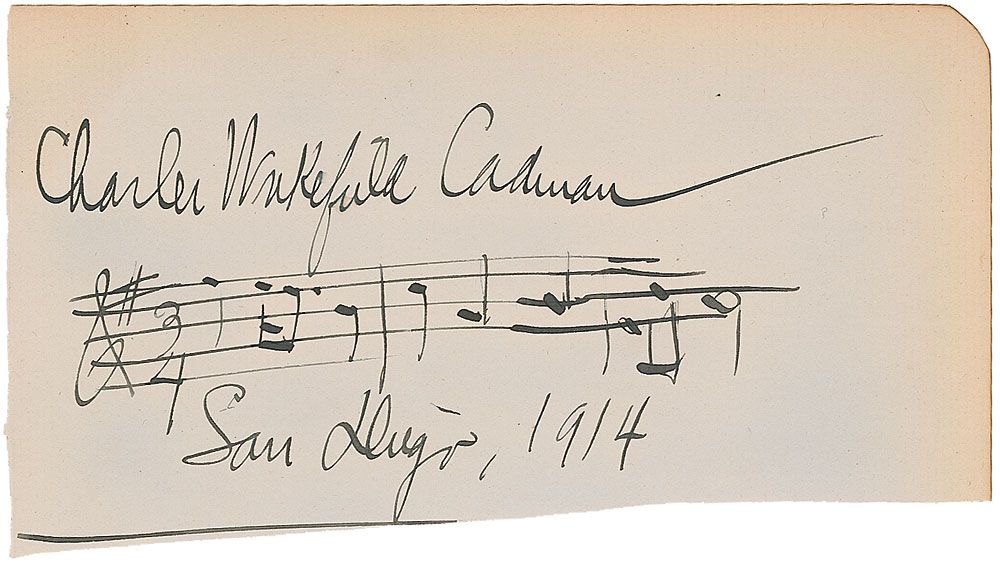 Charles Wakefield Cadman
3
4
San Diego, 1914